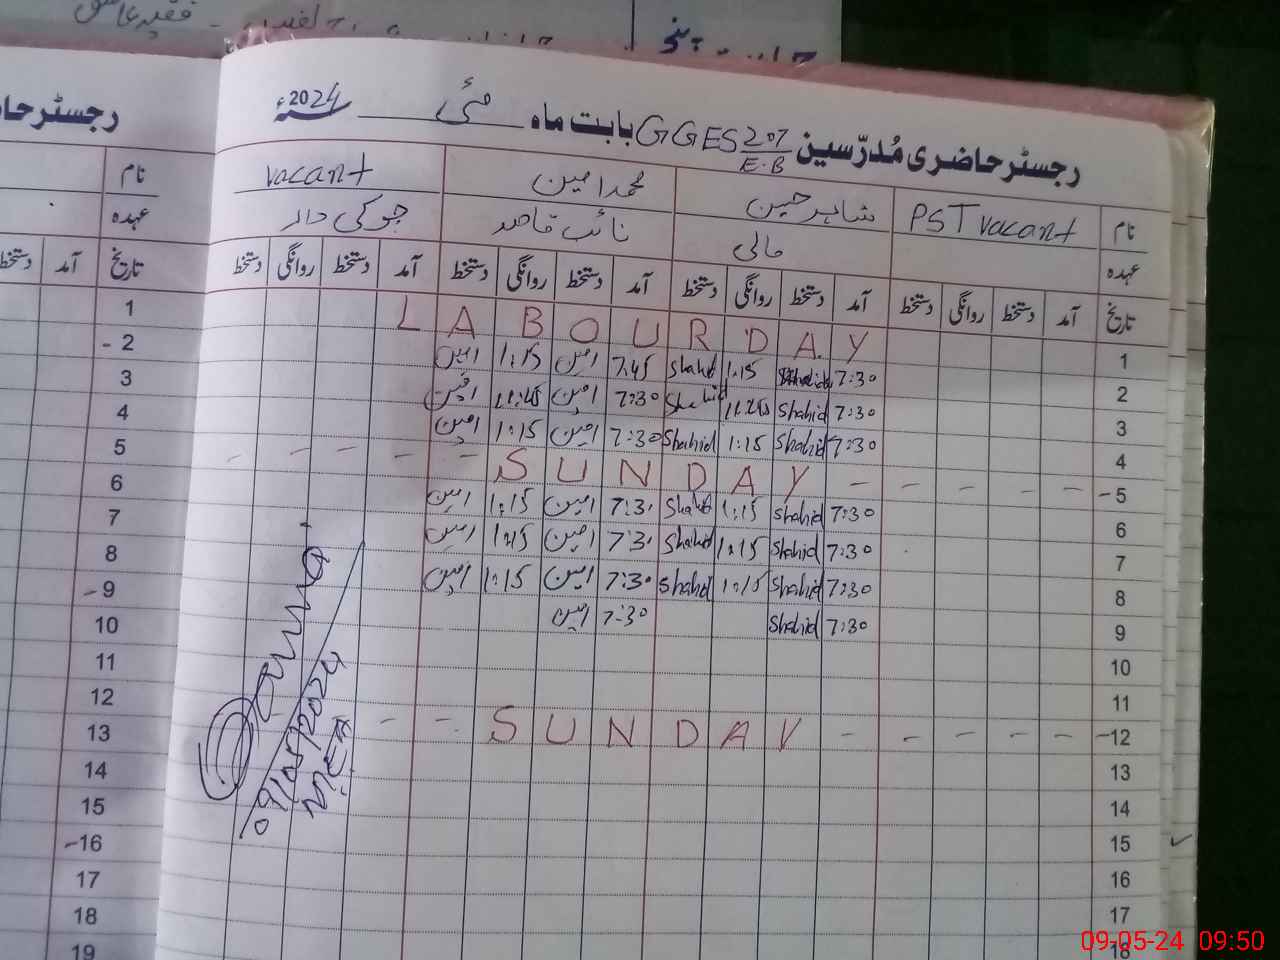 رجسٹر حاضری مُدرّسین GGES 207/E.B بابت ماہ مئی سنہ 2024ء
نام PST vacant شاہد حسین محمد امین vacant
عہدہ مالی نائب قاصد چوکی دار
تاریخ آمد دستخط روانگی دستخط آمد دستخط روانگی دستخط آمد دستخط روانگی دستخط آمد دستخط روانگی دستخط
1 LABOUR DAY
2 7:30 Shahid 1:15 Shahid 7:45 امین 1:15 امین
3 7:30 Shahid 11:45 Shahid 7:30 امین 11:45 امین
4 7:30 Shahid 1:15 Shahid 7:30 امین 1:15 امین
5 - - - - - SUNDAY - - - - -
6 7:30 Shahid 1:15 Shahid 7:30 امین 1:15 امین
7 7:30 Shahid 1:15 Shahid 7:30 امین 1:15 امین
8 7:30 Shahid 1:15 Shahid 7:30 امین 1:15 امین
9 7:30 Shahid 7:30 امین
10
11
12 - - - - - SUNDAY - -
13
14
15
16
17
18
09/05/2024
MEA
رجسٹر حا
نام
عہدہ
تاریخ آمد دستخط
1
2
3
4
5
6
7
8
9
10
11
12
13
14
15
16
17
18
19
09-05-24 09:50